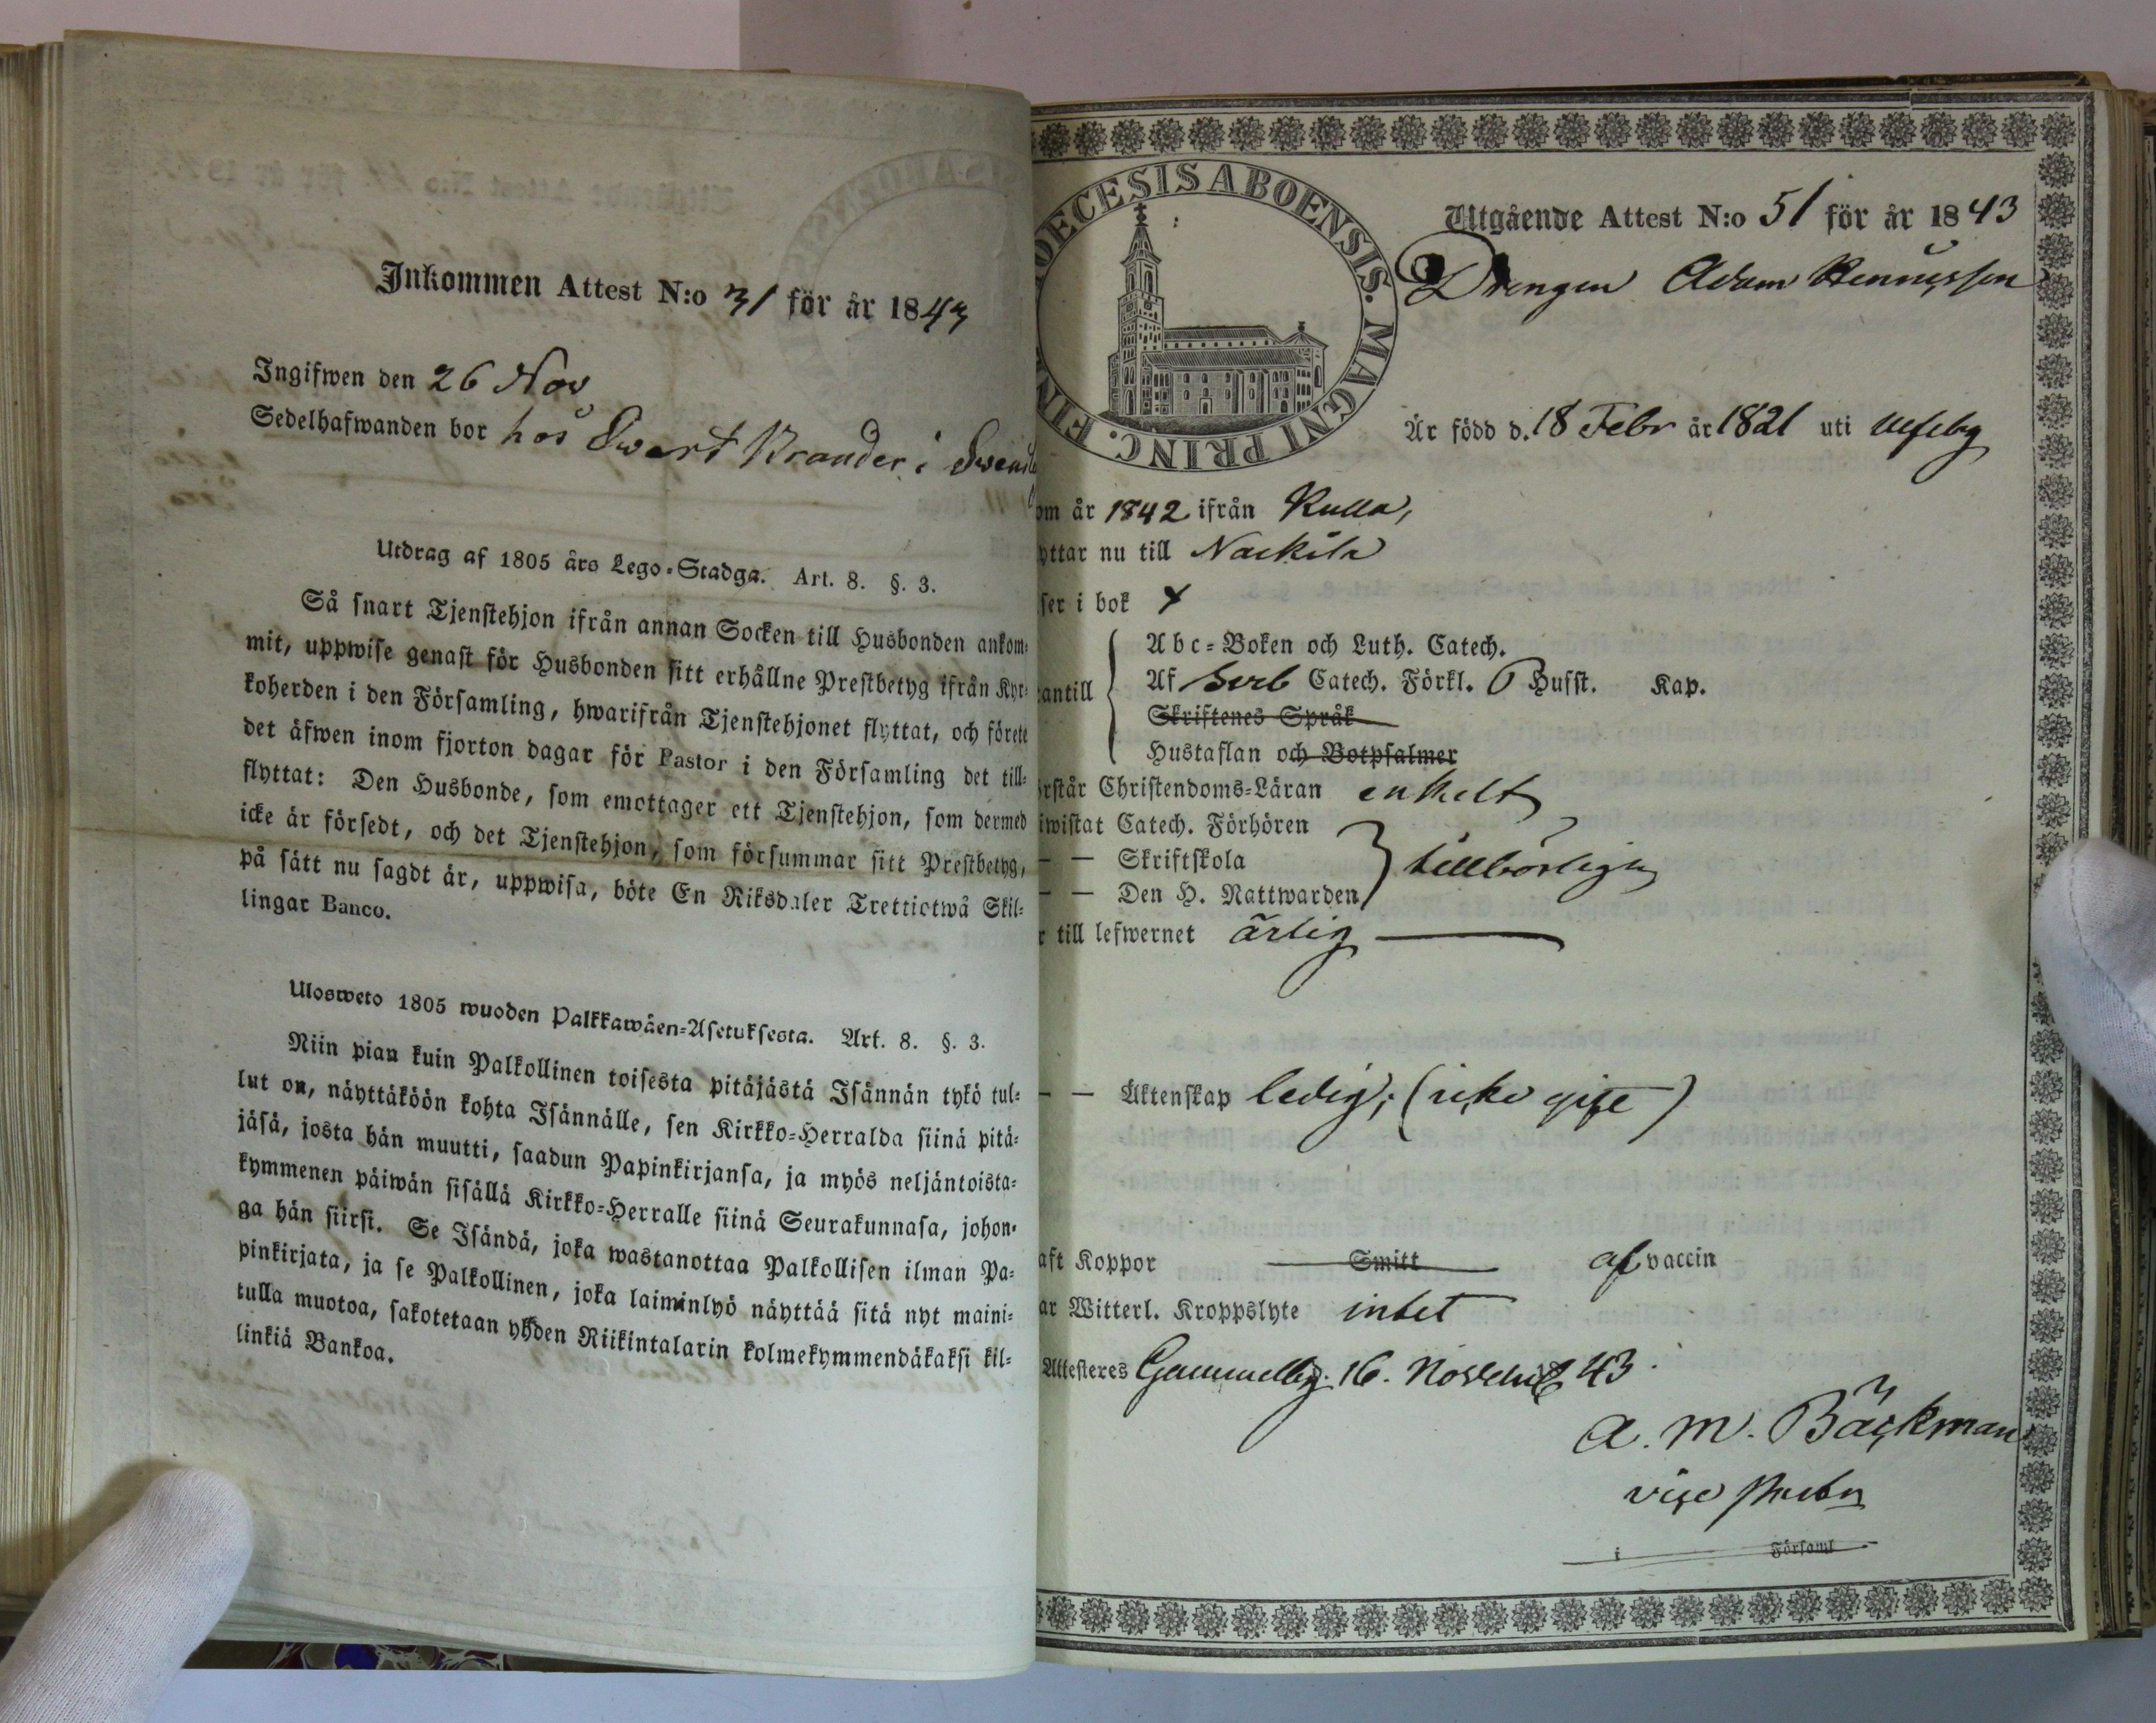 Inkommen Attest N:o 31 för år 1843
Ingifwen den 26 Nov
Sedelhafwanden bor hos Ewert Brander i
Utdrag af 1805 års Lego-Stadga. Art. 8. §. 3.
Så snart Tjenstehjon ifrån annan Socken till Husbonden ankom-
mit, uppwise genast för Husbonden sitt erhållne Prestbetyg ifrån Kyr-
koherden i den Församling, hwarifrån Tjenstehjonet flyttat, och förete
det äfwen inom fjorton dagar för Pastor i den Församling det till-
flyttat: Den Husbonde, som emottager ett Tjenstehjon, som dermed
icke är försedt, och det Tjenstehjon, som försummar sitt Prestbetyg,
på sätt nu sagdt är, uppwisa, böte En Riksdaler Trettiotwå Skil-
lingar Banco.
Ulosweto 1805 wuoden Palkkawäen-Asetuksesta. Art. 8. §. 3.
Niin pian kuin Palkollinen toisesta pitäjästä Isännän tykö tul-
lut on, näyttäköön kohta Isännälle, sen Kirkko-Herralda siinä pitä-
jäsä, josta hän muutti, saadun Papinkirjansa, ja myös neljäntoista-
kymmenen päiwän sisällä Kirkko-Herralle siinä Seurakunnasa, johon-
ga hän siirsi. Se Isändä, joka wastanottaa Palkollisen ilman Pa-
pinkirjata, ja se Palkollinen, joka laiminlyö näyttää sitä nyt maini-
tulla muotoa, sakotetaan yhden Riikintalarin kolmekymmendäkaksi kil-
linkiä Bankoa.
OECESIS ABOENSIS. MAGNI PRINC. FIN
Utgående Attest N:o 51 för år 1843
Drengen Adam
Är född d. 18 Febr år 1821 uti
om år 1842 ifrån Kulla,
yttar nu till Nackila
ser i bok
antill
Abc-Boken och Luth. Catech.
Af Catech. Förkl. Husst. Kap.
Skriftenes Språk
Hustaflan och Botpsalmer
rstår Christendoms-Läran enkelt
iwistat Catech. Förhören
— — Skriftskola tillbörligen
— — Den H. Nattwarden
r till lefwernet ärlig
— — Äktenskap ledig; (icke gift)
aft Koppor Smitt af vaccin
ar Witterl. Kroppslyte intet
Attesteres Gammelby d. 16. Novemb 1843.
A. M. Bäckman
vice Pastor
i Församl